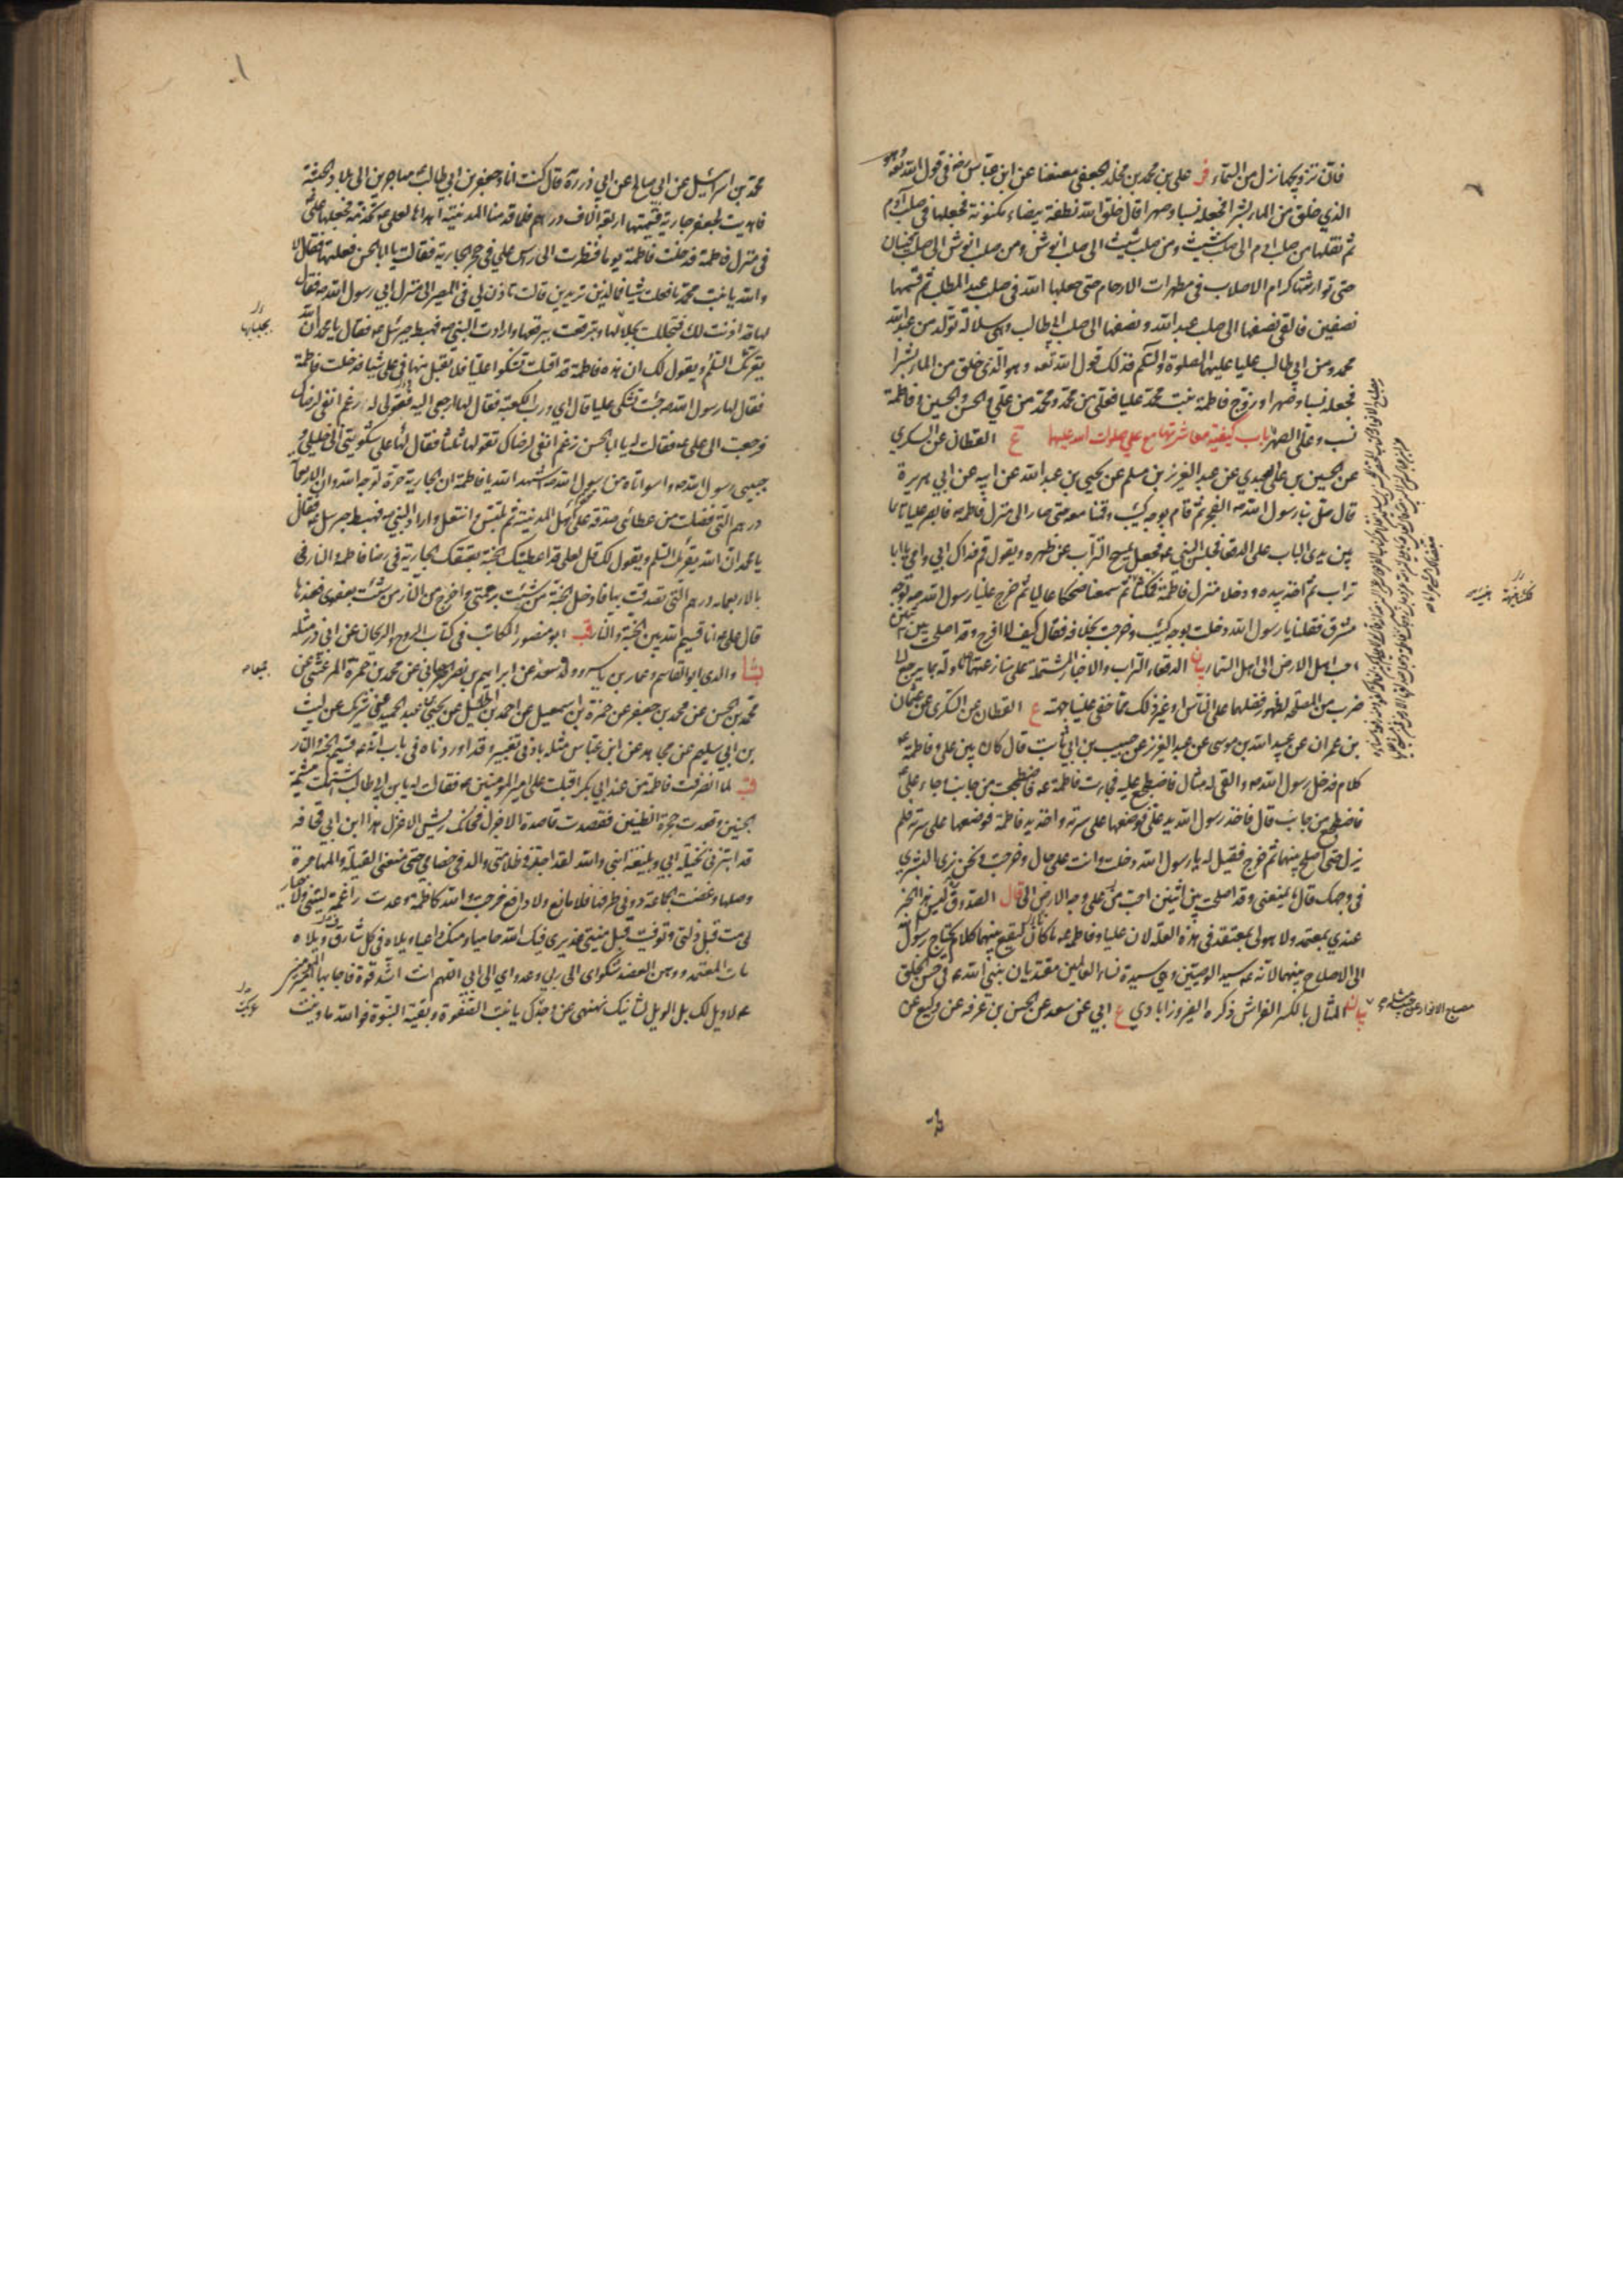 فان تزويجها نزل من السماء فر علي بن محمد بن مخلد الجعفي معنعنا عن ابن عباس رضه في قوله تعه وهو
الذي خلق من الماء بشرا فجعله نسبا وصهرا قال خلق الله نطفة بيضاء مكنونة فجعلها في صلب آدم
ثم نقلها من صلب ادم الى صلب شيث ومن صلب شيث الى صلب انوش ومن صلب انوش الى صلب قينان
حتى توارثتها كرام الاصلاب في مطهرات الارحام حتى جعلها الله في صلب عبد المطلب ثم قسمها
نصفين فالقى نصفها الى صلب عبد الله ونصفها الى صلب ابي طالب وهي سلالة تولد من عبد الله
محمد ومن ابي طالب عليا عليهما الصلوة والسلم فذلك قول الله تعه وهو الذي خلق من الماء بشرا
فجعله نسبا وصهرا وزوج فاطمة بنت محمد عليا فعلي من محمد ومحمد من علي والحسن والحسين وفاطمة
نسب وعلي الصهر باب كيفية معاشرتها مع علي صلوات الله عليهما ع القطان عن السكري
عن الحسين بن علي العبدي عن عبد العزيز بن مسلم عن يحيى بن عبد الله عن ابيه عن ابي هريرة
قال صلى بنا رسول الله ص الفجر ثم قام بوجه كئيب وقمنا معه حتى صار الى منزل فاطمه فابصر عليا نائما
بين يدي الباب على الدقعاء فجلس النبي ص فجعل يمسح التراب عن ظهره ويقول قم فداك ابي وامي يا ابا
تراب ثم اخذ بيده ودخلا منزل فاطمة فمكثنا ثم سمعنا ضحكا عاليا ثم خرج علينا رسول الله ص بوجه
مشرق فقلنا يا رسول الله دخلت بوجه كئيب وخرجت بخلافه فقال كيف لا افرح وقد اصلحت بين اثنين
احب اهل الارض الى اهل السماء بيان الدقعاء التراب والاخبار المشتملة على منازعتهما ماولة بما يرجع الى
ضرب من المصلحة لظهور فضلهما على الناس او غير ذلك مما خفي علينا جهته ع القطان عن السكري عن عثمان
بن عمران عن عبيد الله بن موسى عن عبد العزيز عن حبيب بن ابي ثابت قال كان بين علي وفاطمة
كلام فدخل رسول الله ص والقي له مثال فاضطجع عليه فجاءت فاطمة ع فاضطجعت من جانب وجاء علي
فاضطجع من جانب قال فاخذ رسول الله يد علي فوضعها على سرته واخذ يد فاطمة فوضعها على سرته فلم
يزل حتى اصلح بينهما ثم خرج فقيل له يا رسول الله دخلت وانت على حال وخرجت ونحن نرى البشرى
في وجهك قال ما يمنعني وقد اصلحت بين اثنين احب من على وجه الارض الي قال الصدوق ليس هذا الخبر
عندي بمعتمد ولا هو لي بمعتقد في هذه العلة لان عليا وفاطمه ما كان ليقع بينهما كلام يحتاج رسول الله
الى الاصلاح بينهما لانه ع سيد الوصيين وهي سيدة نساء العالمين مقتديان بنبي الله ص في حسن الخلق
بيان المثال بالكسر الفراش ذكره الفيروزابادي ع ابي عن سعد عن الحسن بن عرفه عن وكيع عن
محمد بن اسرائيل عن ابي صالح عن ابي ذر ره قال كنت انا وجعفر بن ابي طالب مهاجرين الى بلاد الحبشة
فاهديت لجعفر جارية قيمتها اربعة الاف درهم فلما قدمنا المدينة اهداها لعلي ع تخدمه فجعلها علي
في منزل فاطمة فدخلت فاطمة يوما فنظرت الى راس علي في حجر الجارية فقالت يا ابا الحسن فعلتها فقال لا
والله يا بنت محمد ما فعلت شيئا فما الذي تريدين قالت تاذن لي في المصير الى منزل ابي رسول الله ص فقال
لها قد اذنت لك فتجللت بجلالها وتبرقعت ببرقعها وارادت النبي ص فهبط جبرئيل ع فقال يا محمد ان الله
يقرئك السلم ويقول لك ان هذه فاطمة قد اقبلت تشكوا عليا فلا تقبل منها في علي شيئا فدخلت فاطمة
فقال لها رسول الله ص جئت تشكين عليا قال اي ورب الكعبة فقال لها ارجعي اليه فقولي له رغم انفي لرضاك
فرجعت الى علي ع فقالت له يا ابا الحسن رغم انفي لرضاك تقولها ثلثا فقال لها علي شكوتني الى خليلي و
حبيبي رسول الله ص واسواتاه من رسول الله ص اشهد الله يا فاطمة ان الجارية حرة لوجه الله وان الاربعمائة
درهم التي فضلت من عطائي صدقة على اهل المدينة ثم تلبس وانتعل واراد النبي ص فهبط جبرئيل ع فقال
يا محمد ان الله يقرئك السلم ويقول لك قل لعلي قد اعطيتك الجنة بعتقك الجارية في رضا فاطمة والنار
بالاربعمائه درهم التي تصدقت بها فادخل الجنة من شئت برحمتي واخرج من النار من شئت بعفوي فعندها
قال علي ع انا قسيم الله بين الجنة والنار قب ابو منصور الكاتب في كتاب الروح والريحان عن ابي ذر مثله
بشا والدي ابو القاسم وعمار بن ياسر وولده سعد عن ابراهيم بن نصر الجرجاني عن محمد بن حمزة المرعشي عن
محمد بن الحسن عن محمد بن جعفر عن حمزة بن اسمعيل عن احمد بن الخليل عن يحيى بن عبد الحميد عن شريك عن ليث
بن ابي سليم عن مجاهد عن ابن عباس مثله بادنى تغيير وقد اوردناه في باب انه ع قسيم الجنة والنار
قب لما انصرفت فاطمة من عند ابي بكر اقبلت على امير المؤمنين ع فقالت له يا بن ابي طالب اشتملت مشيمة
الجنين وقعدت حجرة الظنين فنقضت قادمة الاجدل فخانك ريش الاعزل هذا ابن ابي قحافه
قد ابتزني نحيلة ابي وبليغة ابني والله لقد اجد في ظلامتي والد في خصامي حتى منعني القيلة والمهاجرة
وصلها وغضت الجماعة دوني طرفها فلا مانع ولا دافع خرجت والله كاظمة وعدت راغمة ليتني ولا خيار
لي مت قبل ذلتي وتوفيت قبل منيتي عذيري فيك الله حاميا ومنك عاديا ويلاه في كل شارق ويلاه
مات المعتمد ووهن العضد شكواي الى ربي وعدواي الى ابي اللهم انت اشد قوة فاجابها امير المؤمنين
ع لا ويل لك بل الويل لشانئك نهنهي عن وجدك يا بنت الصفوة وبقية النبوة فوالله ما ونيت